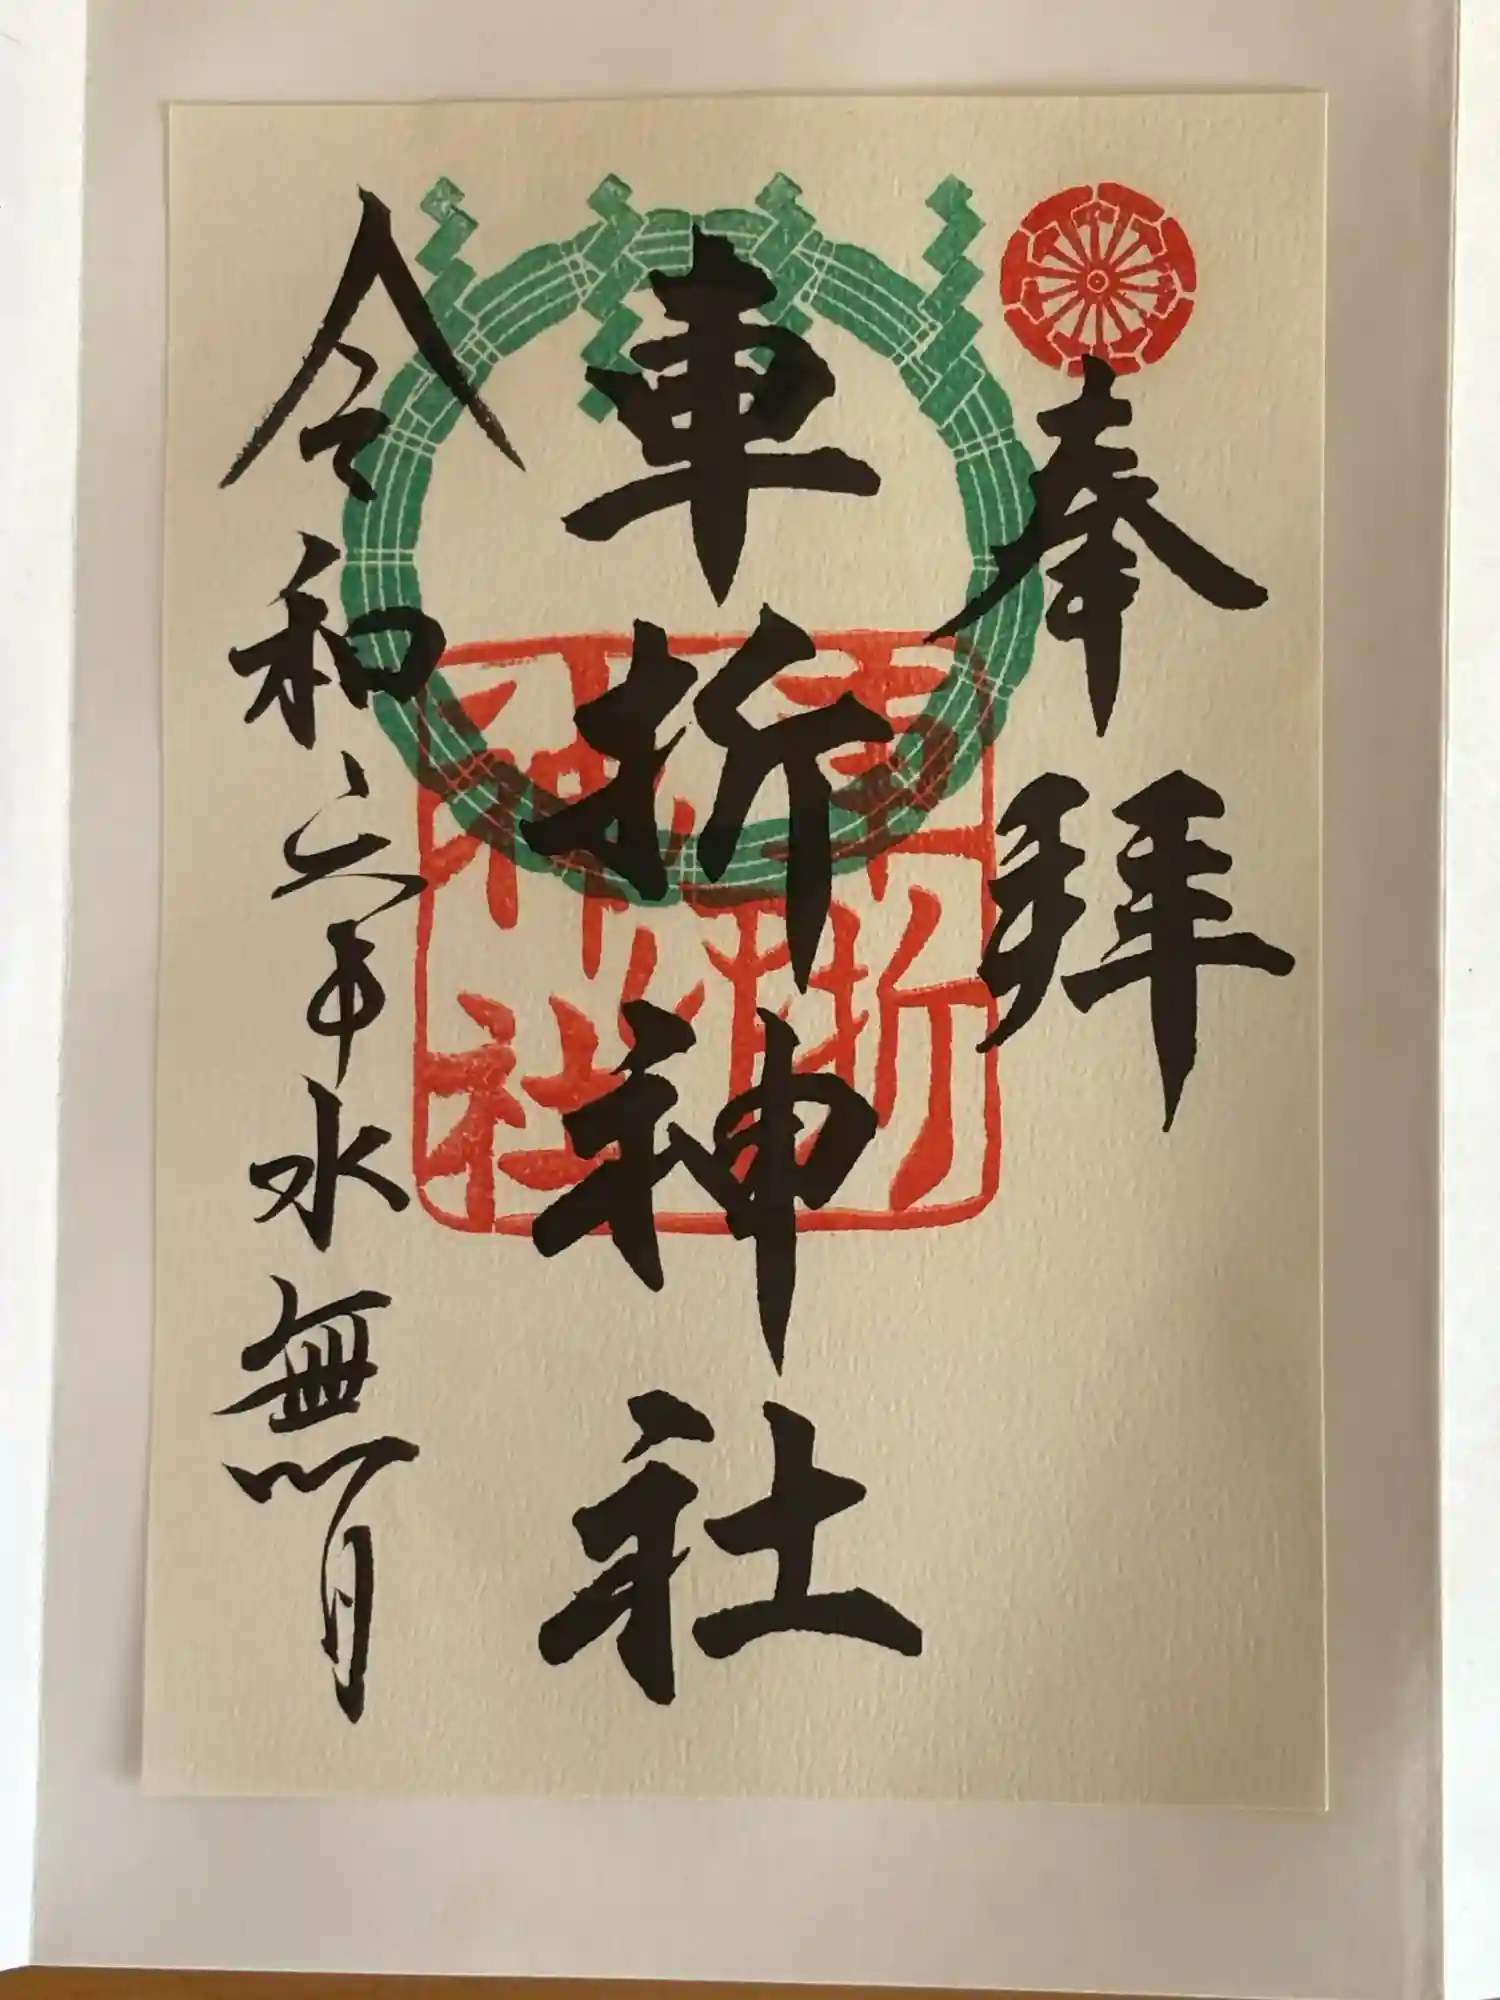 奉拝
車折神社
令和六年水無月
車折
神社